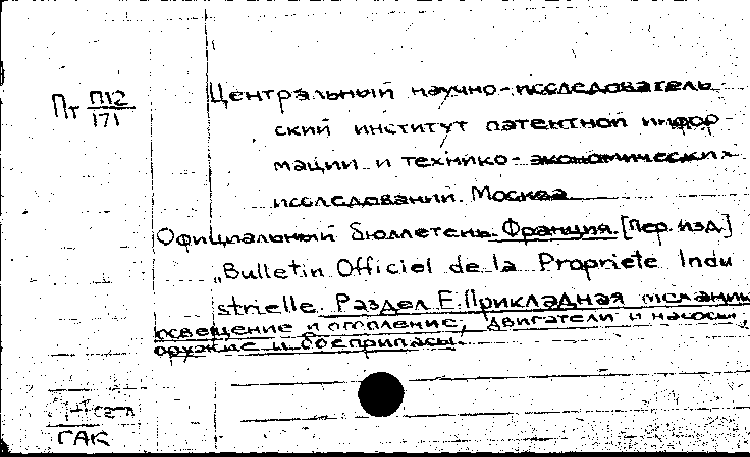 Пт П12
171
Центральный научно-исследователь
ский институт патентной инфор-
мации и технико-экономических
исследований. Москва
Официальный бюллетень. Франция. [Пер. изд.]
„Bulletin Officiel de la Propriete Indu
strielle. Раздел F. Прикладная механика
освещение и отопление, двигатели и насосы,
оружие и боеприпасы.
ГАК